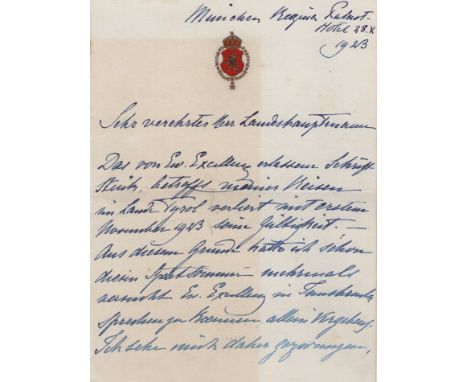 München Regina Palast-
Hotel 28. X.
1923
Sehr verehrter Herr Landeshauptmann
Das von Ew. Excellenz erlassene Schrift-
stück, betreffs meiner Reisen
im Land Tyrol verliert mit ersten
November 1923 seine Gültigkeit. –
Aus diesem Grunde hatte ich schon
diesen Spätsommer mehrmals
versucht Ew. Excellenz in Innsbruck
sprechen zu koennen allein vergebens.
Ich sehe mich daher gezwungen,